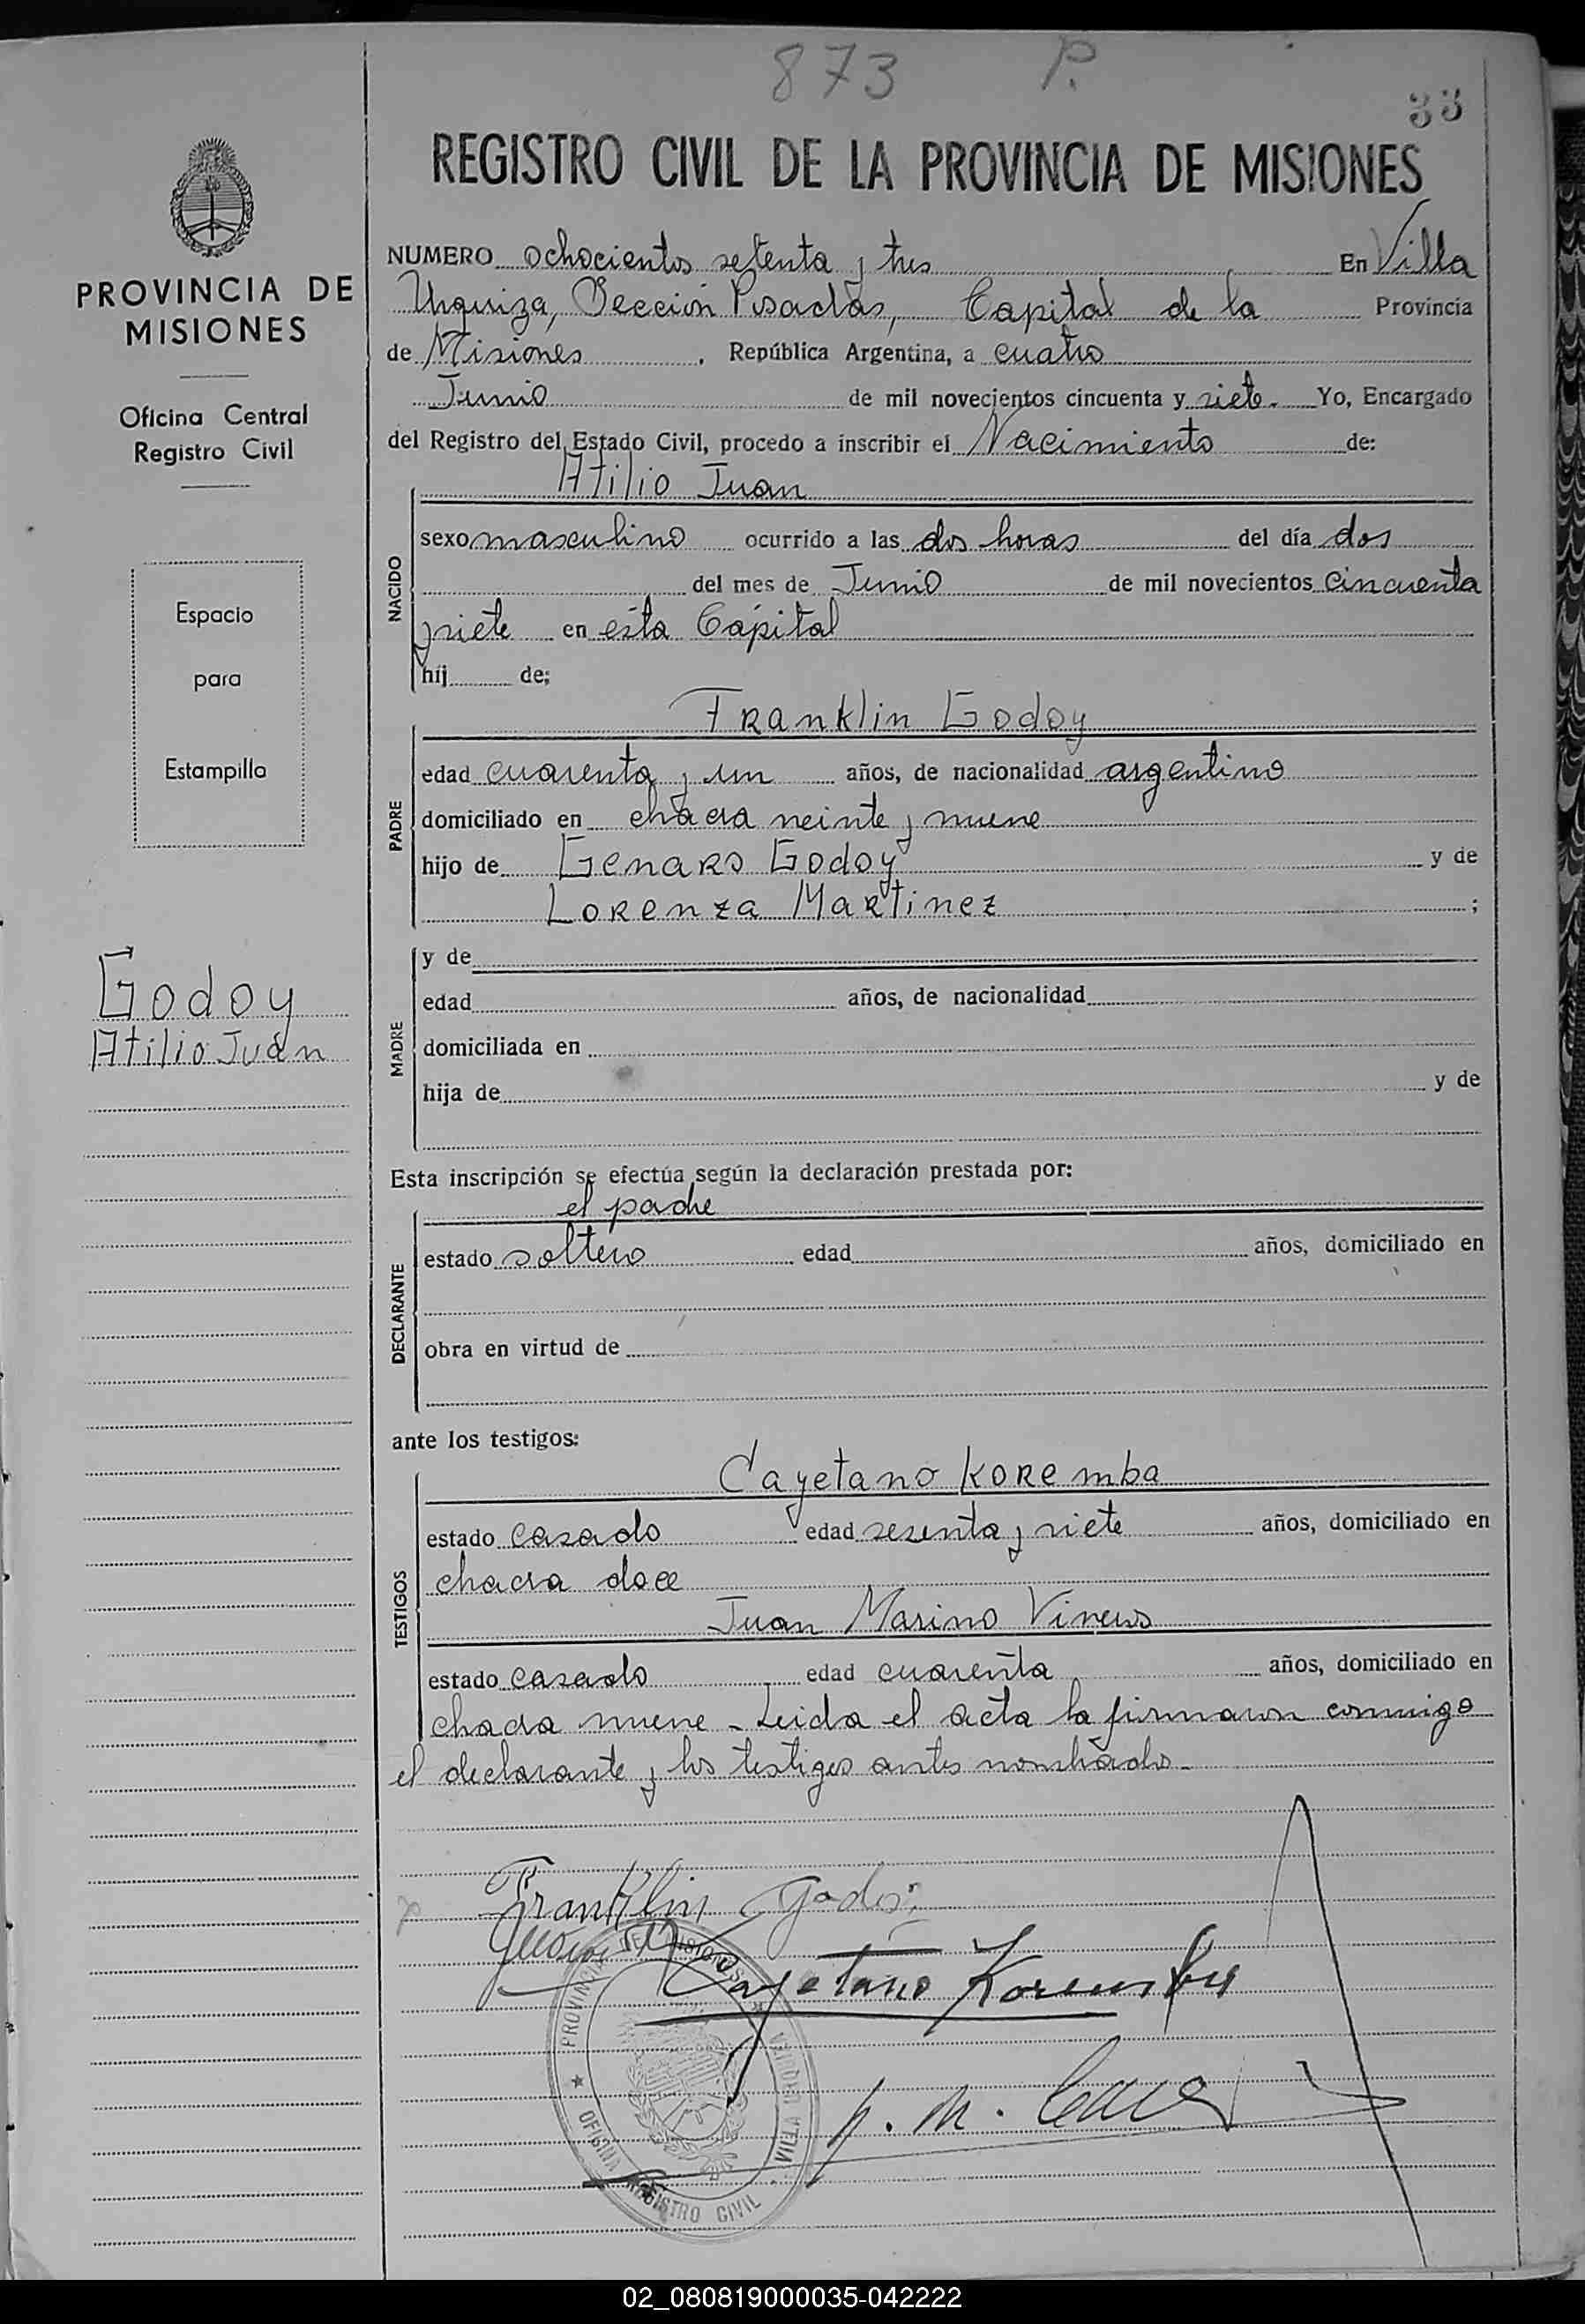 873 P.
33
REGISTRO CIVIL DE LA PROVINCIA DE MISIONES
PROVINCIA DE
MISIONES
Oficina Central
Registro Civil
Espacio
para
Estampilla
Godoy
Atilio Juan
NUMERO ochocientos setenta y tres En Villa
Urquiza, Sección Posadas, Capital de la Provincia
de Misiones, República Argentina, a cuatro
Junio de mil novecientos cincuenta y siete. Yo, Encargado
del Registro del Estado Civil, procedo a inscribir el Nacimiento de:
Atilio Juan
NACIDO
sexo masculino ocurrido a las dos horas del día dos
del mes de Junio de mil novecientos cincuenta
y siete en esta Capital
hij de;
Franklin Godoy
PADRE
edad cuarenta y un años, de nacionalidad argentino
domiciliado en chacra veinte y nueve
hijo de Genaro Godoy y de
Lorenza Martinez ;
MADRE
y de
edad años, de nacionalidad
domiciliada en
hija de y de
Esta inscripción se efectúa según la declaración prestada por:
el padre
DECLARANTE
estado soltero edad años, domiciliado en
obra en virtud de
ante los testigos:
Cayetano Koremba
TESTIGOS
estado casado edad sesenta y siete años, domiciliado en
chacra doce
Juan Marino Viveros
estado casado edad cuarenta años, domiciliado en
chacra nueve - Leida el acta la firmaron conmigo
el declarante y los testigos antes nombrados.-
Franklin Godoi
Cayetano Koremba
PROVINCIA DE MISIONES
OFICINA REGISTRO CIVIL
VILLA URQUIZA
02_080819000035-042222